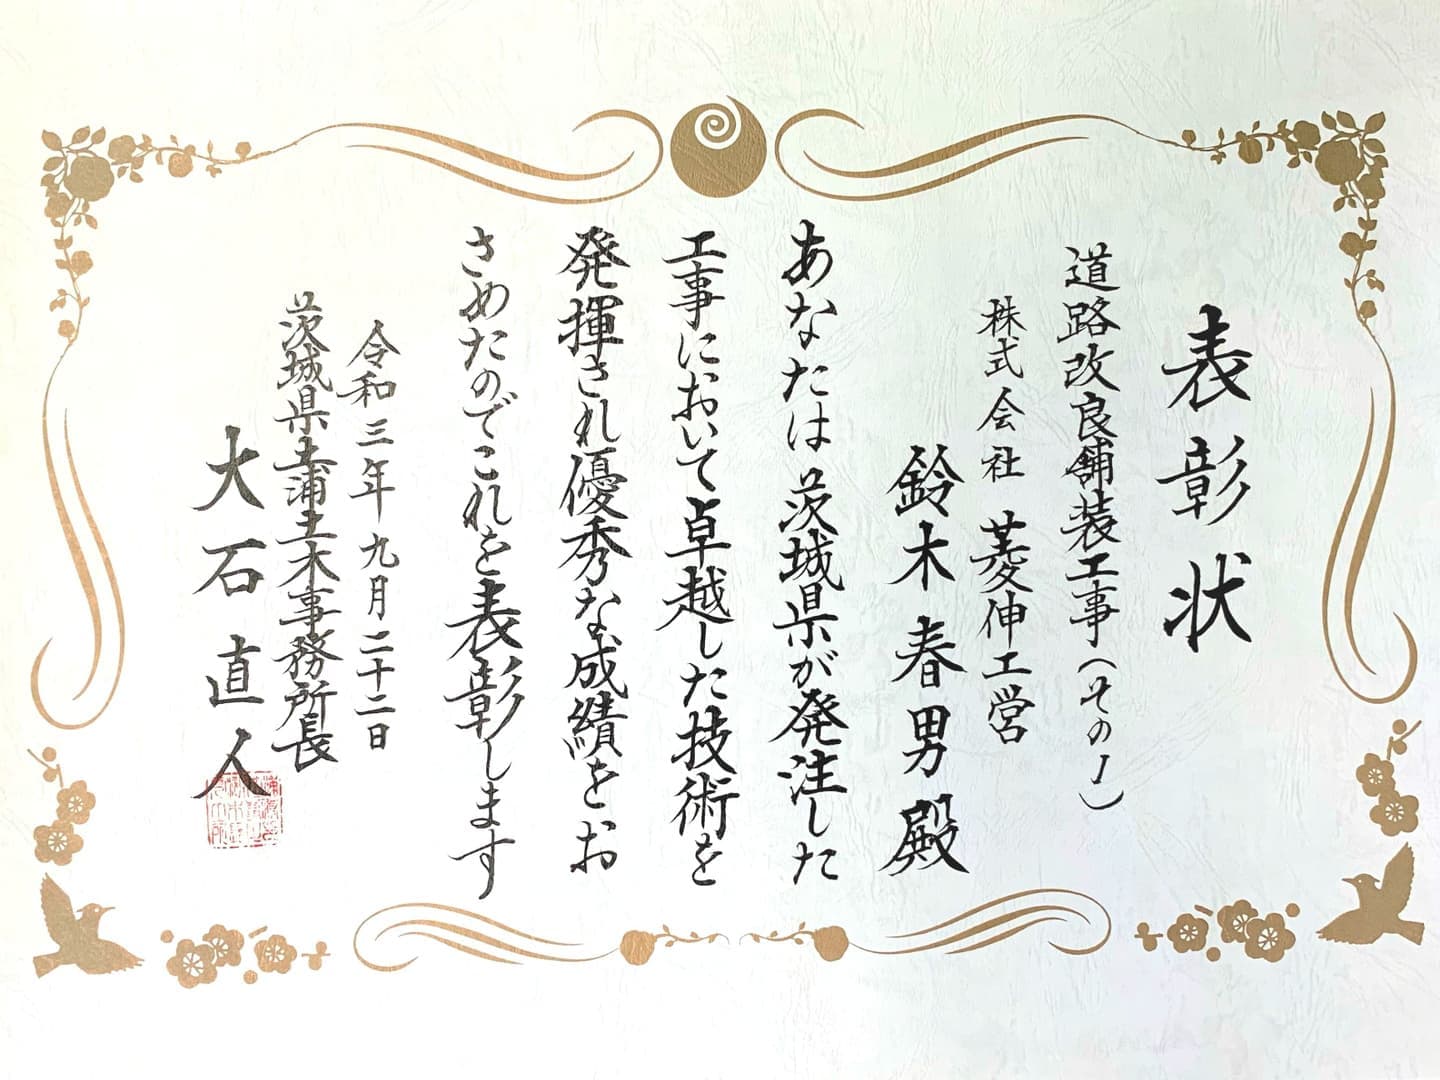 表彰状
道路改良舗装工事(その1)
株式会社 菱伸工営
鈴木春男殿
あなたは茨城県が発注した
工事において卓越した技術を
発揮され優秀な成績をお
さめたのでこれを表彰します
令和三年九月二十二日
茨城県土浦土木事務所長
大石直人